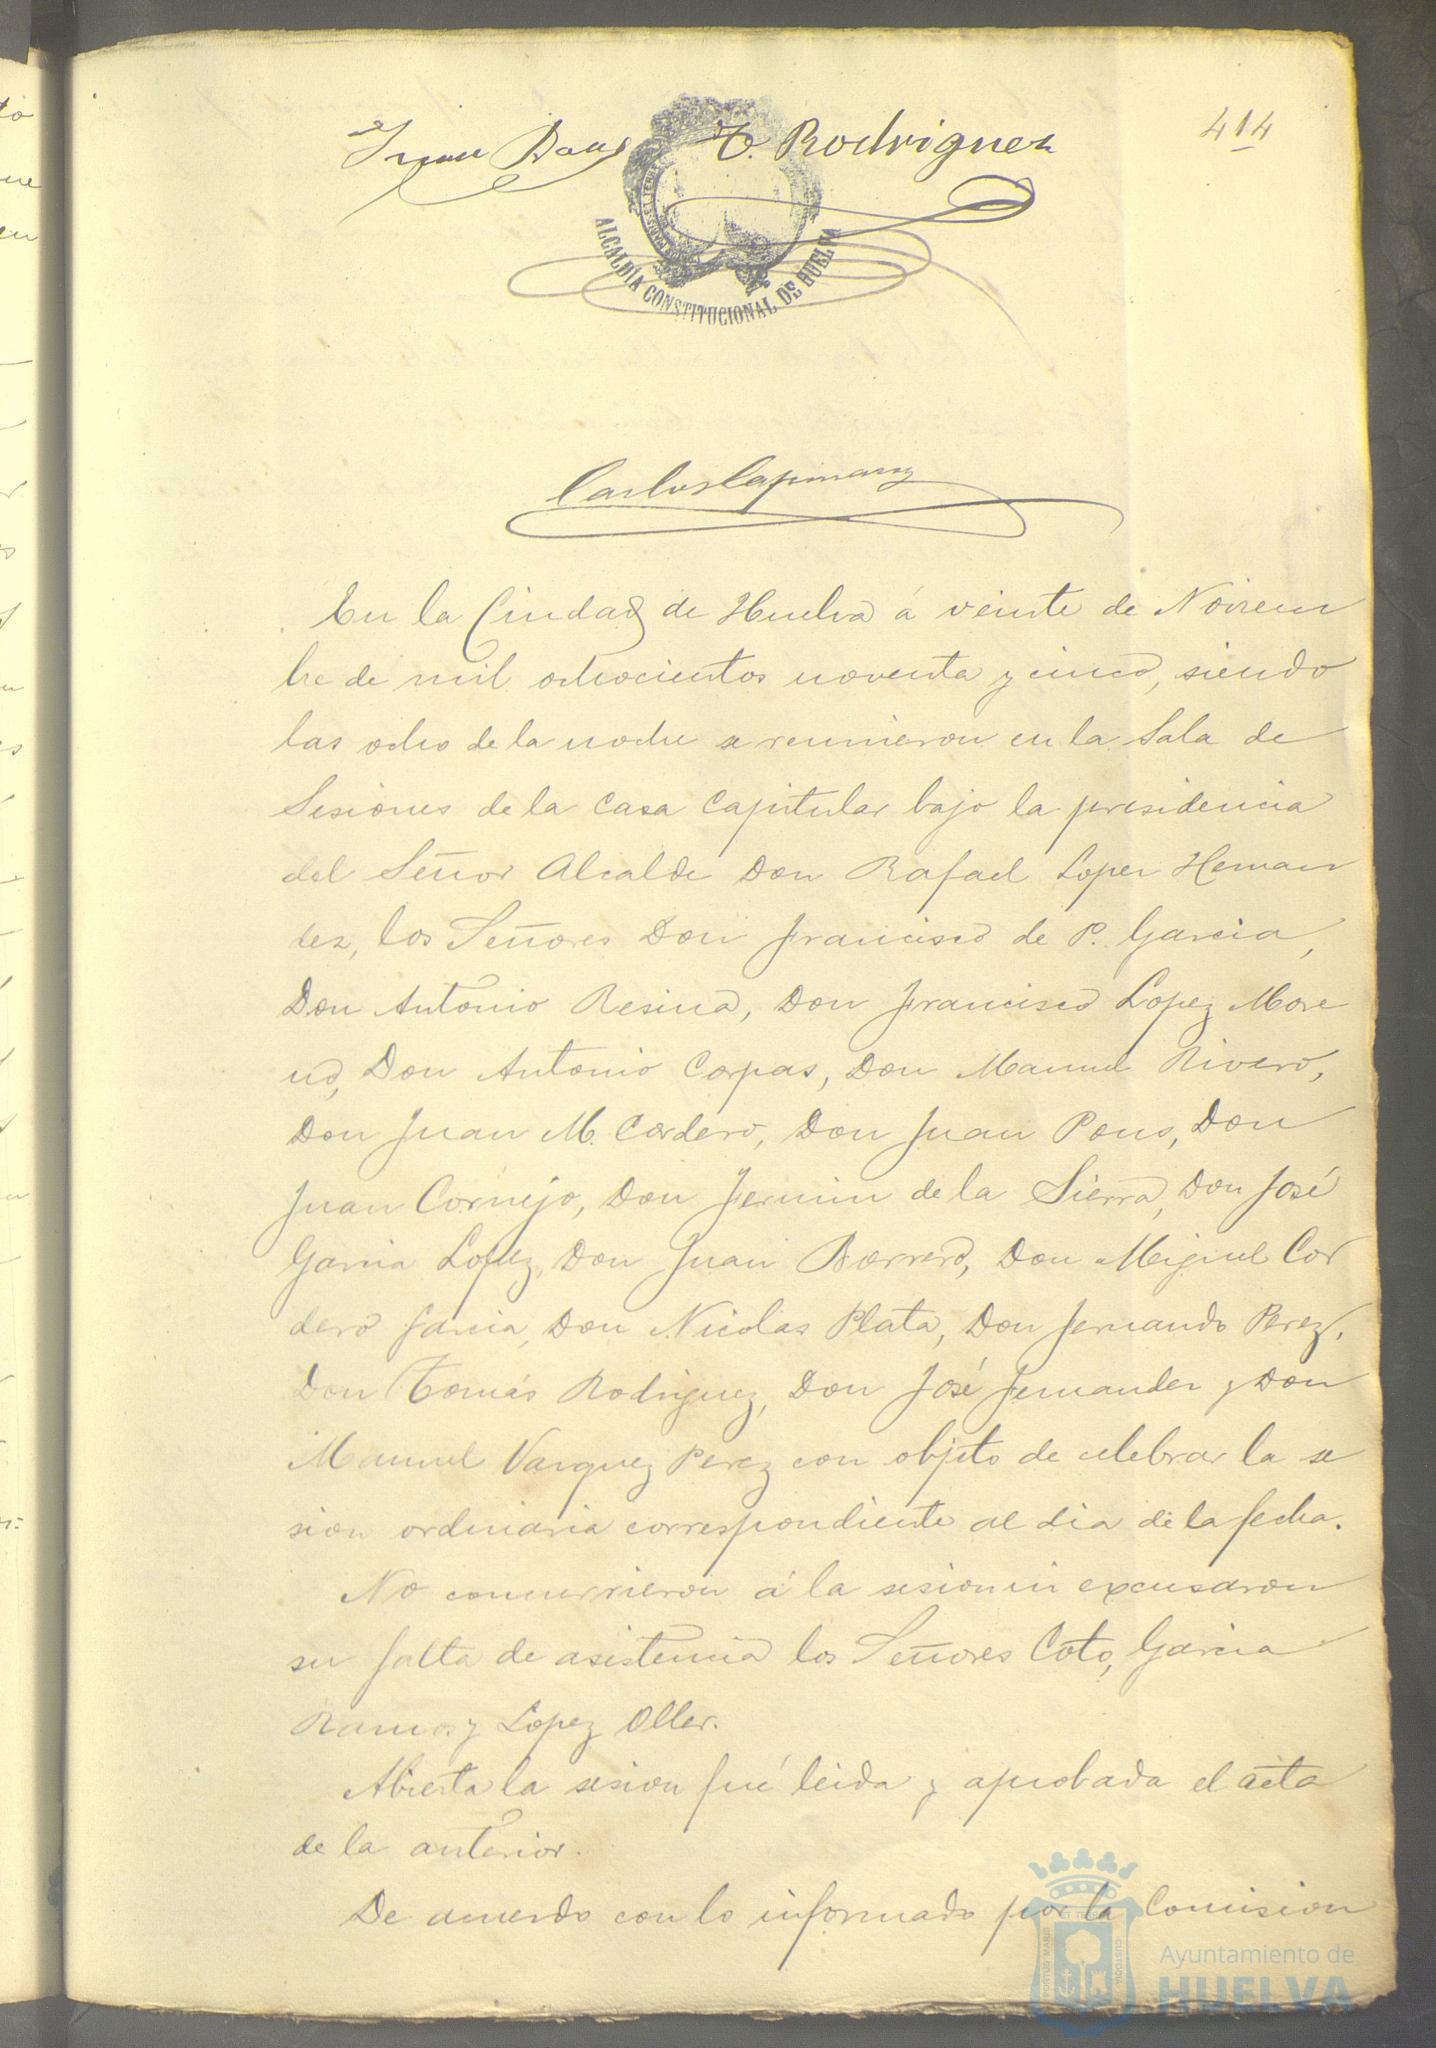 414
Juan Pons T. Rodriguez
ALCALDÍA CONSTITUCIONAL DE HUELVA
Carlos
En la Ciudad de Huelva á veinte de Noviem
bre de mil ochocientos noventa y cinco, siendo
las ocho de la noche se reunieron en la Sala de
Sesiones de la Casa Capitular bajo la presidencia
del Señor Alcalde Don Rafael Lopez Hernan
dez, los Señores Don Francisco de P. Garcia,
Don Antonio Resina, Don Francisco Lopez More
no, Don Antonio Corpas, Don Manuel Rivero,
Don Juan M. Cordero, Don Juan Pons, Don
Juan Cornejo, Don Fermin de la Sierra, Don José
Garcia Lopez, Don Juan Borrero, Don Miguel Cor
dero Garcia, Don Nicolas Plata, Don Fernando Perez,
Don Tomás Rodriguez, Don José Fernandez y Don
Manuel Vazquez Perez con objeto de celebrar la se
sion ordinaria correspondiente al dia de la fecha.
No concurrieron á la sesion ni excusaron
su falta de asistencia los Señores Coto, Garcia
Ramos y Lopez Oller.
Abierta la sesion fué leida y aprobada el acta
de la anterior.
De acuerdo con lo informado por la Comision
PORTUS MARIS ET TERRAE CUSTODIA
Ayuntamiento de
HUELVA